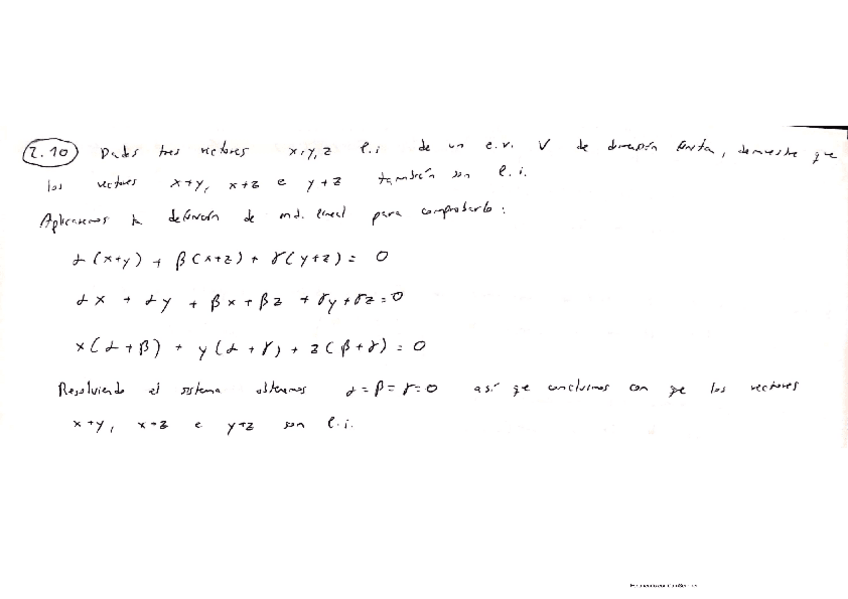 2.10 Dados tres vectores x, y, z l.i de un e.v. V de dimensión finita, demuestre que
los vectores x+y, x+z e y+z también son l.i.
Aplicaremos la definición de ind. lineal para comprobarlo:
α(x+y) + β(x+z) + γ(y+z) = 0
αx + αy + βx + βz + γy + γz = 0
x(α+β) + y(α+γ) + z(β+γ) = 0
Resolviendo el sistema obtenemos α=β=γ=0 así que concluimos con que los vectores
x+y, x+z e y+z son l.i.